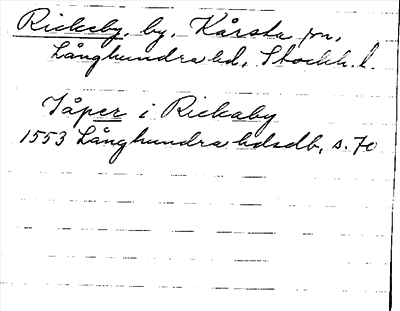 Rickeby, by, Kårsta sn,
Långhundra hd, Stockh. l.
Tåper i Rickaby
1553 Långhundra hdsdb, s. 70